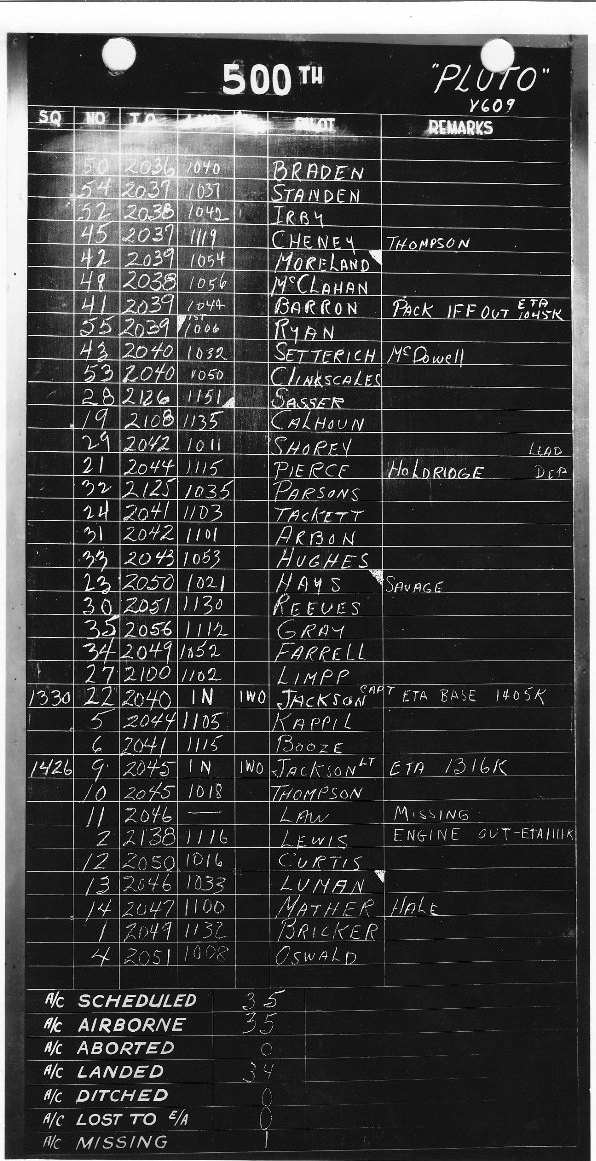 500TH "PLUTO"
V609
SQ NO T.O. LAND PILOT REMARKS
50 2036 1040 BRADEN
54 2037 1037 STANDEN
52 2038 1042 IRBY
45 2037 1119 CHENEY THOMPSON
42 2039 1054 MORELAND
48 2038 1056 McCLAHAN
41 2039 1044 BARRON PACK IFF OUT ETA 1045K
55 2039 1ST 1006 RYAN
43 2040 1032 SETTERICH McDowell
53 2040 1050 CLINKSCALES
28 2126 1151 SASSER
19 2108 1135 CALHOUN
29 2042 1011 SHOREY LEAD
21 2044 1115 PIERCE HOLDRIDGE DEP
32 2125 1035 PARSONS
24 2041 1103 TACKETT
31 2042 1101 ARBON
33 2043 1053 HUGHES
23 2050 1021 HAYS SAVAGE
30 2051 1130 REEVES
35 2056 1112 GRAY
34 2049 1052 FARRELL
27 2100 1102 LIMPP
1330 22 2040 IN IWO JACKSON CAPT ETA BASE 1405K
5 2044 1105 KAPPIL
6 2041 1115 BOOZE
1426 9 2045 IN IWO JACKSON LT ETA 1316K
10 2045 1018 THOMPSON
11 2046 — LAW MISSING
2 2138 1116 LEWIS ENGINE OUT-ETA 1111K
12 2050 1016 CURTIS
13 2046 1033 LUMAN
14 2047 1100 MATHER HALE
1 2049 1132 BRICKER
4 2051 1008 OSWALD
A/C SCHEDULED 35
A/C AIRBORNE 35
A/C ABORTED 0
A/C LANDED 34
A/C DITCHED 0
A/C LOST TO E/A 0
A/C MISSING 1